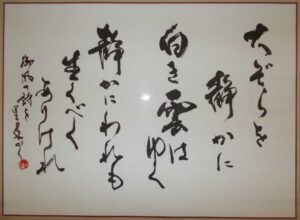 大ぞらを
静かに
白き雲はゆく
静かにわれも
生くべく
ありけれ
御風の詩